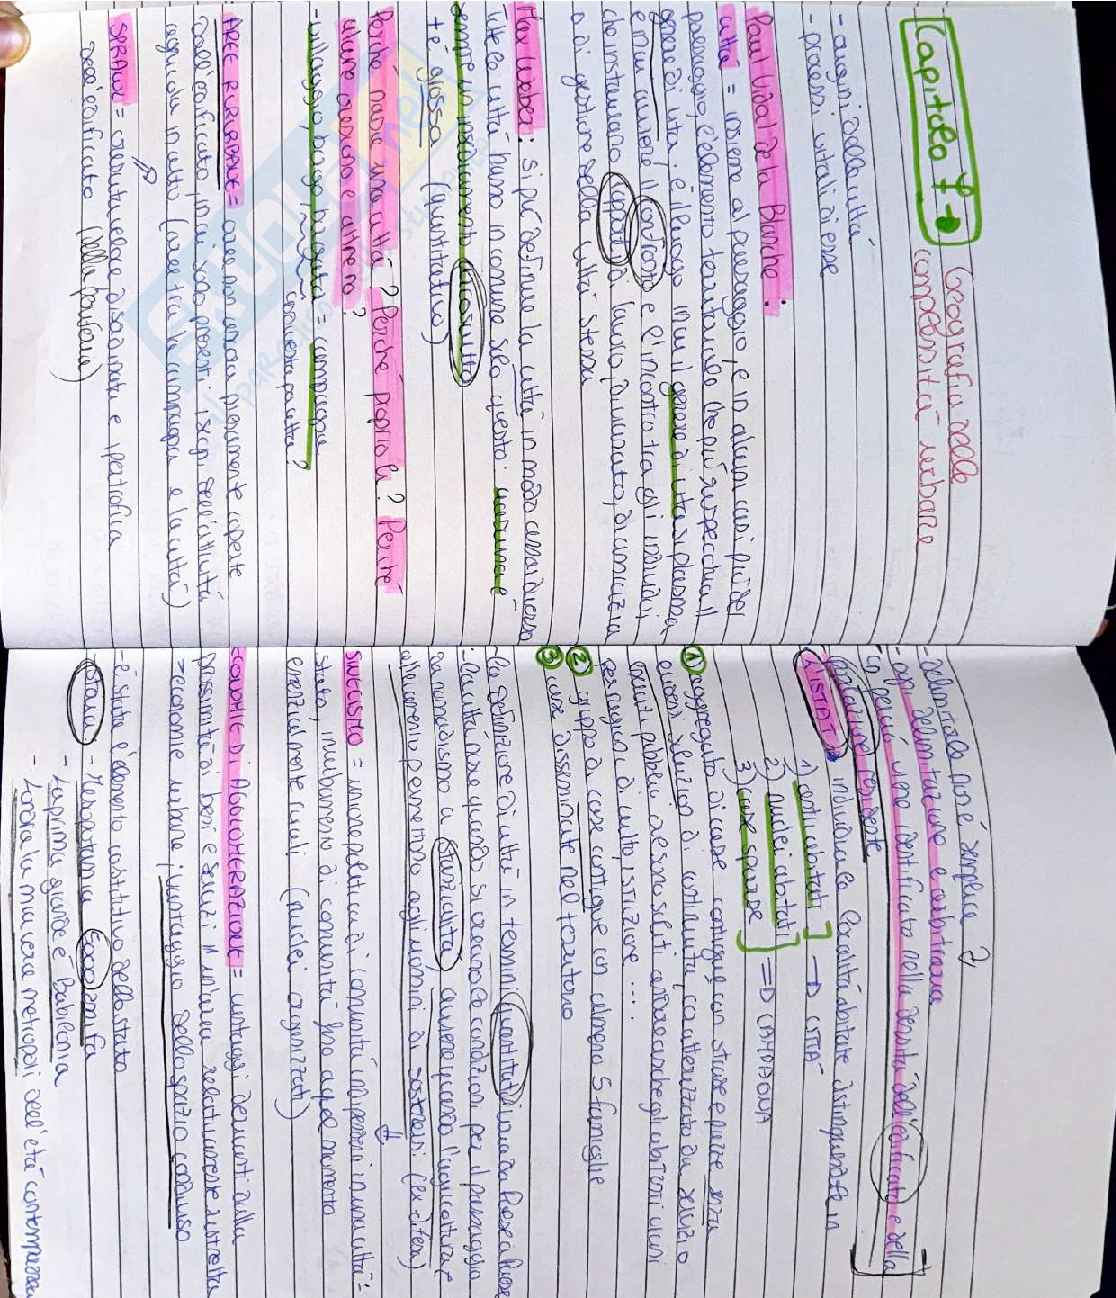 Capitolo 7 → Geografia delle
complessità urbane
- origini della città
- processi vitali di esse
Paul Vidal de la Blanche:
città = insieme al paesaggio, e in alcuni casi più del
paesaggio, è l'elemento territoriale che più rispecchia il
genere di vita; è il luogo in cui il genere di vita si plasma
e in cui avviene il confronto e l'incontro tra gli individui
che instaurano rapporti di lavoro, di mercato, di amicizia
o di gestione della città stessa
Max Weber: si può definire la città in modo assai diverso
tutte le città hanno in comune solo questo:
sempre un insediamento circoscritto
grosso (quantitativo)
Perché nasce una città? Perché proprio lì? Perché
alcune crescono e altre no?
- villaggio, borgo, = campagna
RURURBANE = aree non ancora pienamente coperte
dall'edificato, in cui sono presenti i segni dell'attività
agricola in atto (aree tra la campagna e la città)
SPRAWL = crescita veloce disordinata e ipertrofica
dell'edificato (della periferia)
- definirsi le non è semplice?
- opp. delimitazione è arbitraria
In genere viene identificato nella densità dell'edificato e della
popolazione residente
L'ISTAT individua le località abitate distinguendole in
1) centri abitati ] → CITTÀ
2) nuclei abitati
3) case sparse ] => CAMPAGNA
① aggregato di case contigue con strade e piazze senza
di continuità, caratterizzato da servizio
pubblici che sono soliti andare anche gli abitanti vicini
per ragioni di culto, istruzione ...
② gruppo di case contigue con almeno 5 famiglie
③ case disseminate nel territorio
- la definizione di città in termini quantitativi
- la città nasce quando si creano le condizioni per il passaggio
da nomadismo a stanzialità, ovvero quando l'agricoltura e
allevamento permettono agli uomini di sostarsi
SINECISMO = unione politica di comunità indipendenti in una città-
stato, inurbamento di comunità fino a quel momento
essenzialmente rurali (nuclei organizzati)
ECONOMIE DI AGGLOMERAZIONE = vantaggi derivanti dalla
prossimità di beni e servizi in un'area relativamente ristretta
= economie urbane; vantaggio dello spazio condiviso
- è stata l'elemento costitutivo dello stato
storia - Mesopotamia
- la prima grande è Babilonia
- Londra la macro metropoli dell'età contemporanea